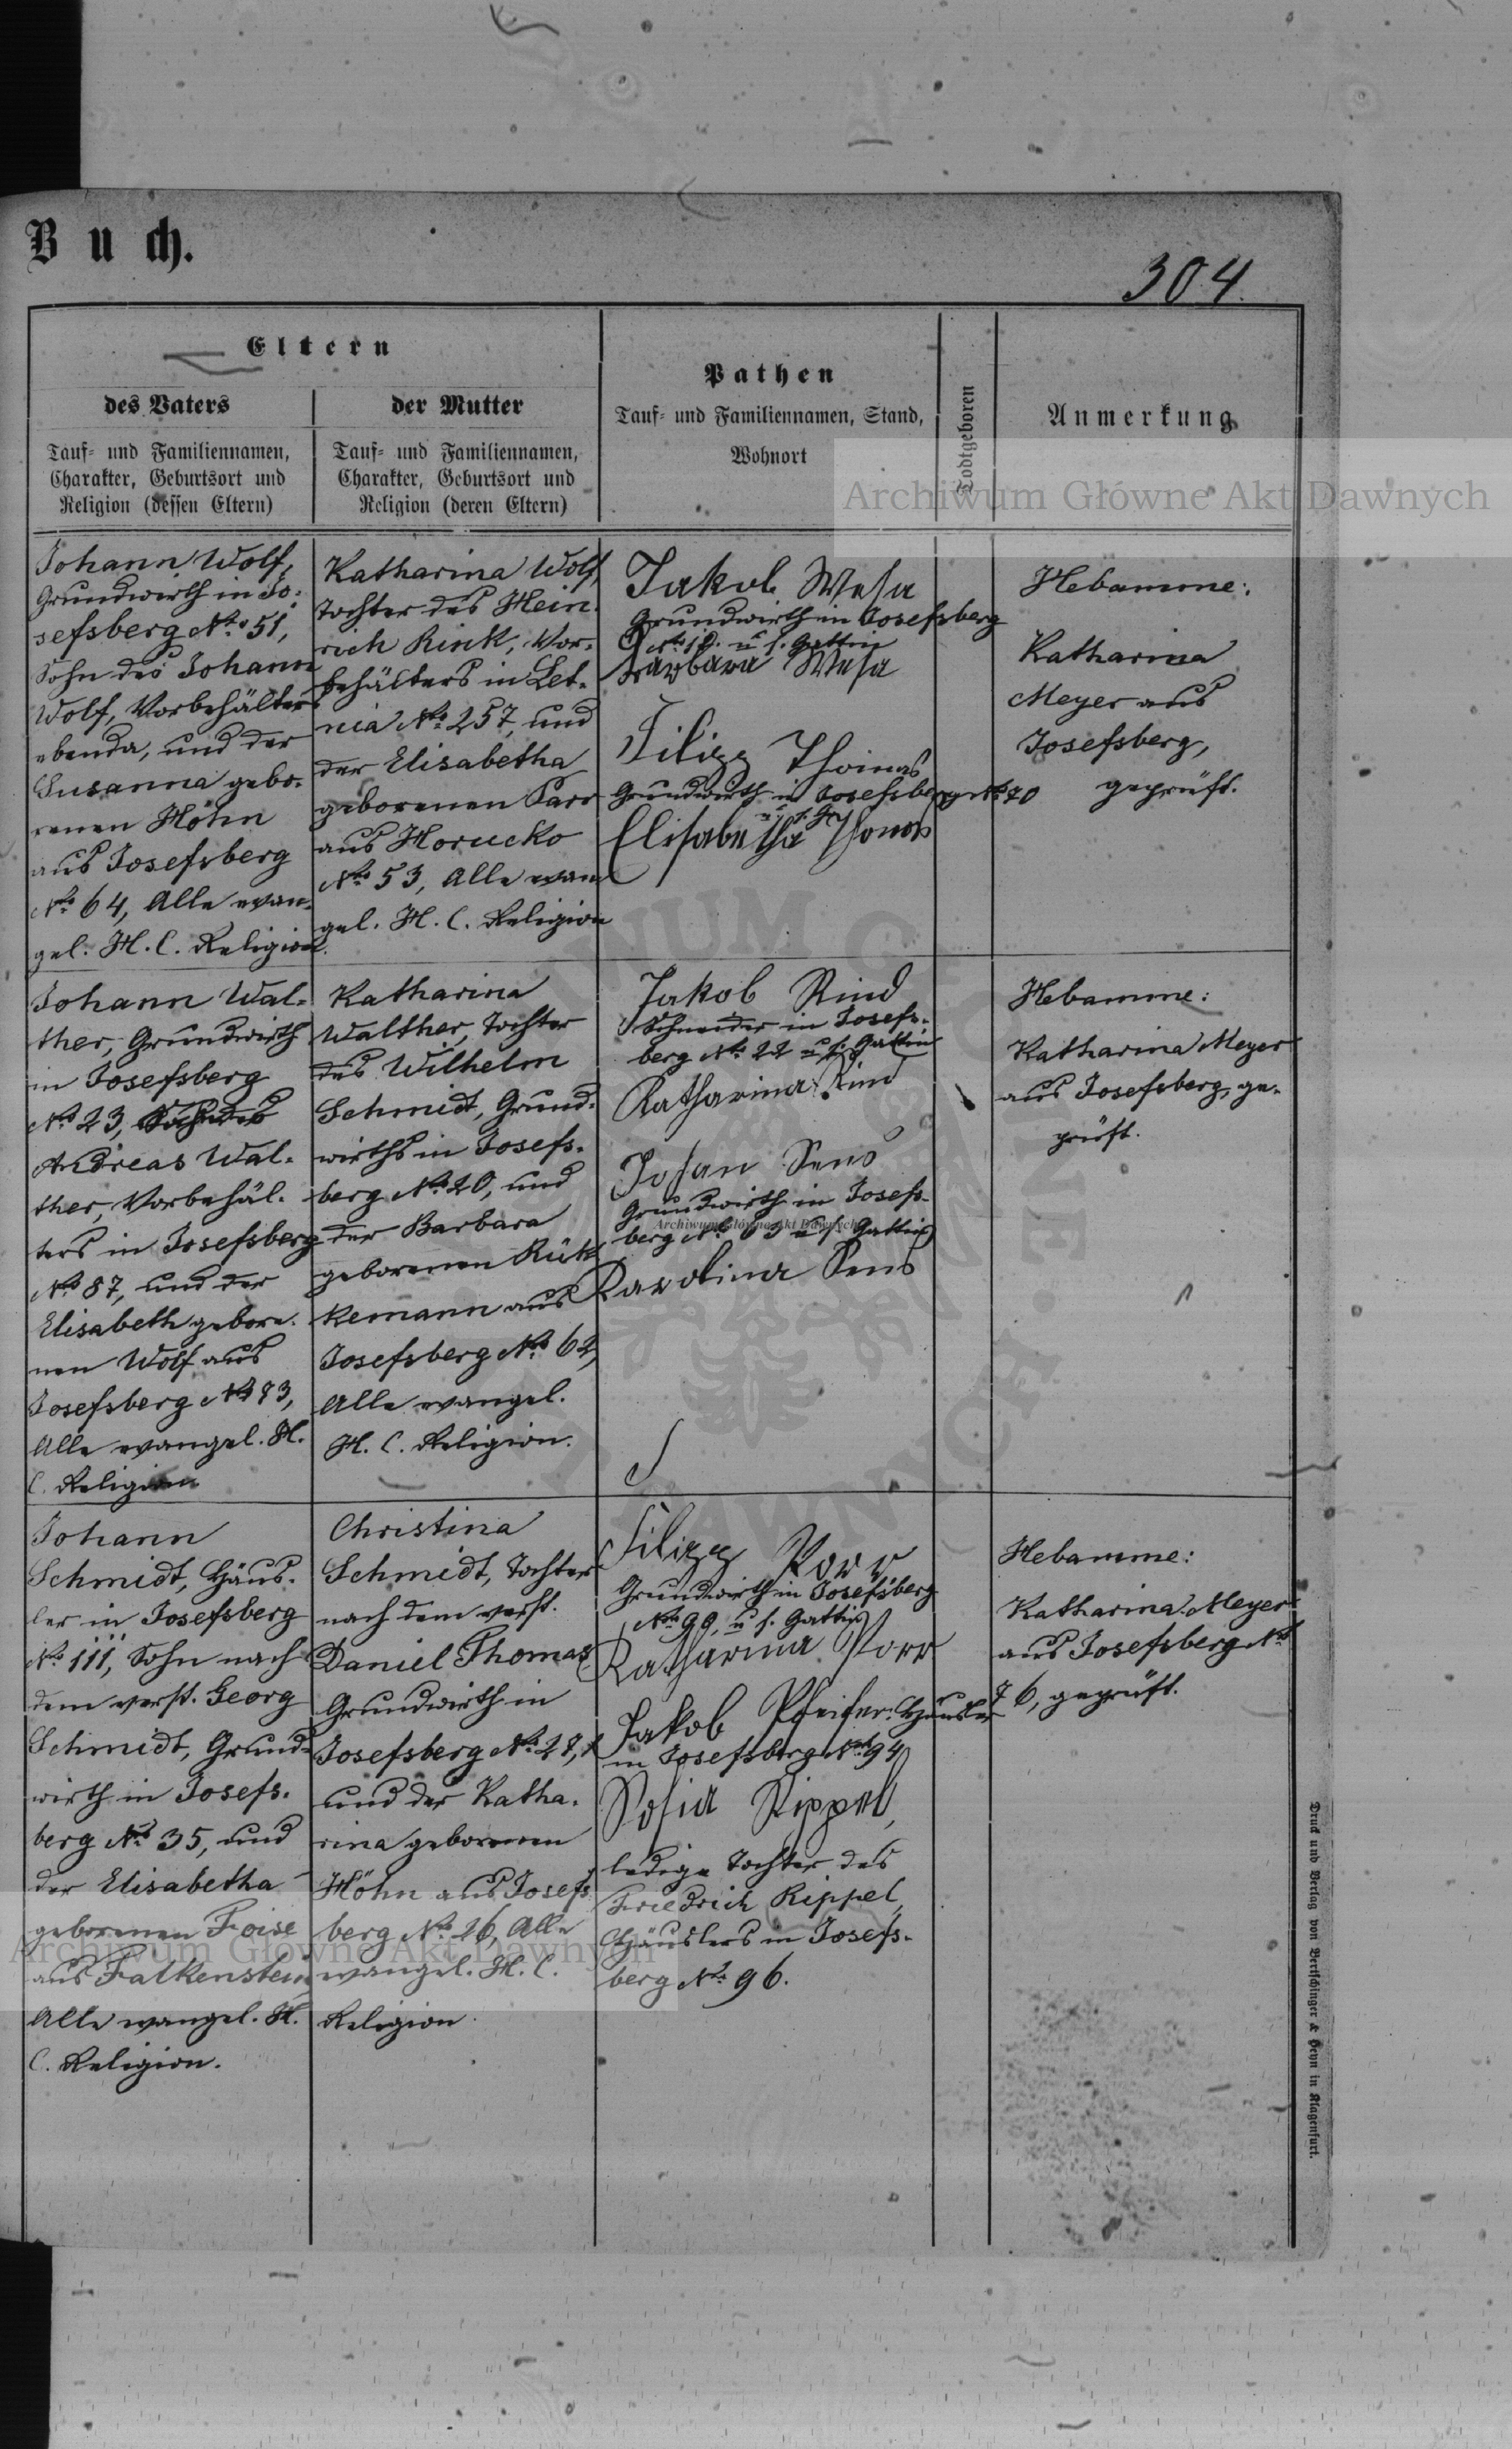 Buch.
304.
Eltern
des Vaters
Tauf- und Familiennamen,
Charakter, Geburtsort und
Religion (dessen Eltern)
der Mutter
Tauf- und Familiennamen,
Charakter, Geburtsort und
Religion (deren Eltern)
Pathen
Tauf- und Familiennamen, Stand,
Wohnort
Todtgeboren
Anmerkung
Archiwum Główne Akt Dawnych
Johann Wolf,
Grundwirth in Jo-
sefsberg No 51,
Sohn des Johann
Wolf, Vorbehälters
ebenda, und der
Susanna gebo-
renen Höhn
aus Josefsberg
No 64, Alle evan-
gel. H. C. Religion.
Katharina Wolf,
Tochter des Hein-
rich Rink, Vor-
behälters in Let-
nia No 257, und
der Elisabetha
geborenen
aus Horucko
No 53, Alle evan-
gel. H. C. Religion
Jakob
Grundwirth in Josefsberg
u. s. Gattin
Barbara
Filipp Thomas
Grundwirth in Josefsberg No 70
Elisabetha Thomas
Hebamme:
Katharina
Meyer aus
Josefsberg,
geprüft.
Johann Wal-
ther, Grundwirth
in Josefsberg
No 23, Sohn des
Andreas Wal-
ther, Vorbehäl-
ters in Josefsberg
No 87, und der
Elisabeth gebore-
nen Wolf aus
Josefsberg No 73,
Alle evangel. H.
C. Religion
Katharina
Walther, Tochter
des Wilhelm
Schmidt, Grund-
wirths in Josefs-
berg No 20, und
der Barbara
geborenen Rük-
kemann aus
Josefsberg No 62,
Alle evangel.
H. C. Religion.
Jakob Rind
Schneider in Josefs-
berg No 22 u. s. Gattin
Katharina Rind
Johan Sens
Grundwirth in Josefs-
berg No 63 u. s. Gattin
Karolina Sens
Archiwum Główne Akt Dawnych
Hebamme:
Katharina Meyer
aus Josefsberg, ge-
prüft.
Johann
Schmidt, Häus-
ler in Josefsberg
No 111, Sohn nach
dem verst. Georg
Schmidt, Grund-
wirth in Josefs-
berg No 35, und
der Elisabetha
geborenen Foise
aus Falkenstein,
Alle evangel. H.
C. Religion.
Christina
Schmidt, Tochter
nach dem verst.
Daniel Thomas
Grundwirth in
Josefsberg No 27,
und der Katha-
rina geborenen
Höhn aus Josefs-
berg No 26, Alle
evangel. H. C.
Religion
Filipp Porr
Grundwirth in Josefsberg
No 99, u. s. Gattin
Katharina Porr
Jakob Pfeifer: Häusler
in Josefsberg No 94
Sofia Rippel,
ledige Tochter des
Friedrich Rippel,
Häuslers in Josefs-
berg No 96.
Hebamme:
Katharina Meyer
aus Josefsberg No
76, geprüft.
Archiwum Główne Akt Dawnych
Druck und Verlag von Bertschinger & Heyn in Klagenfurt.